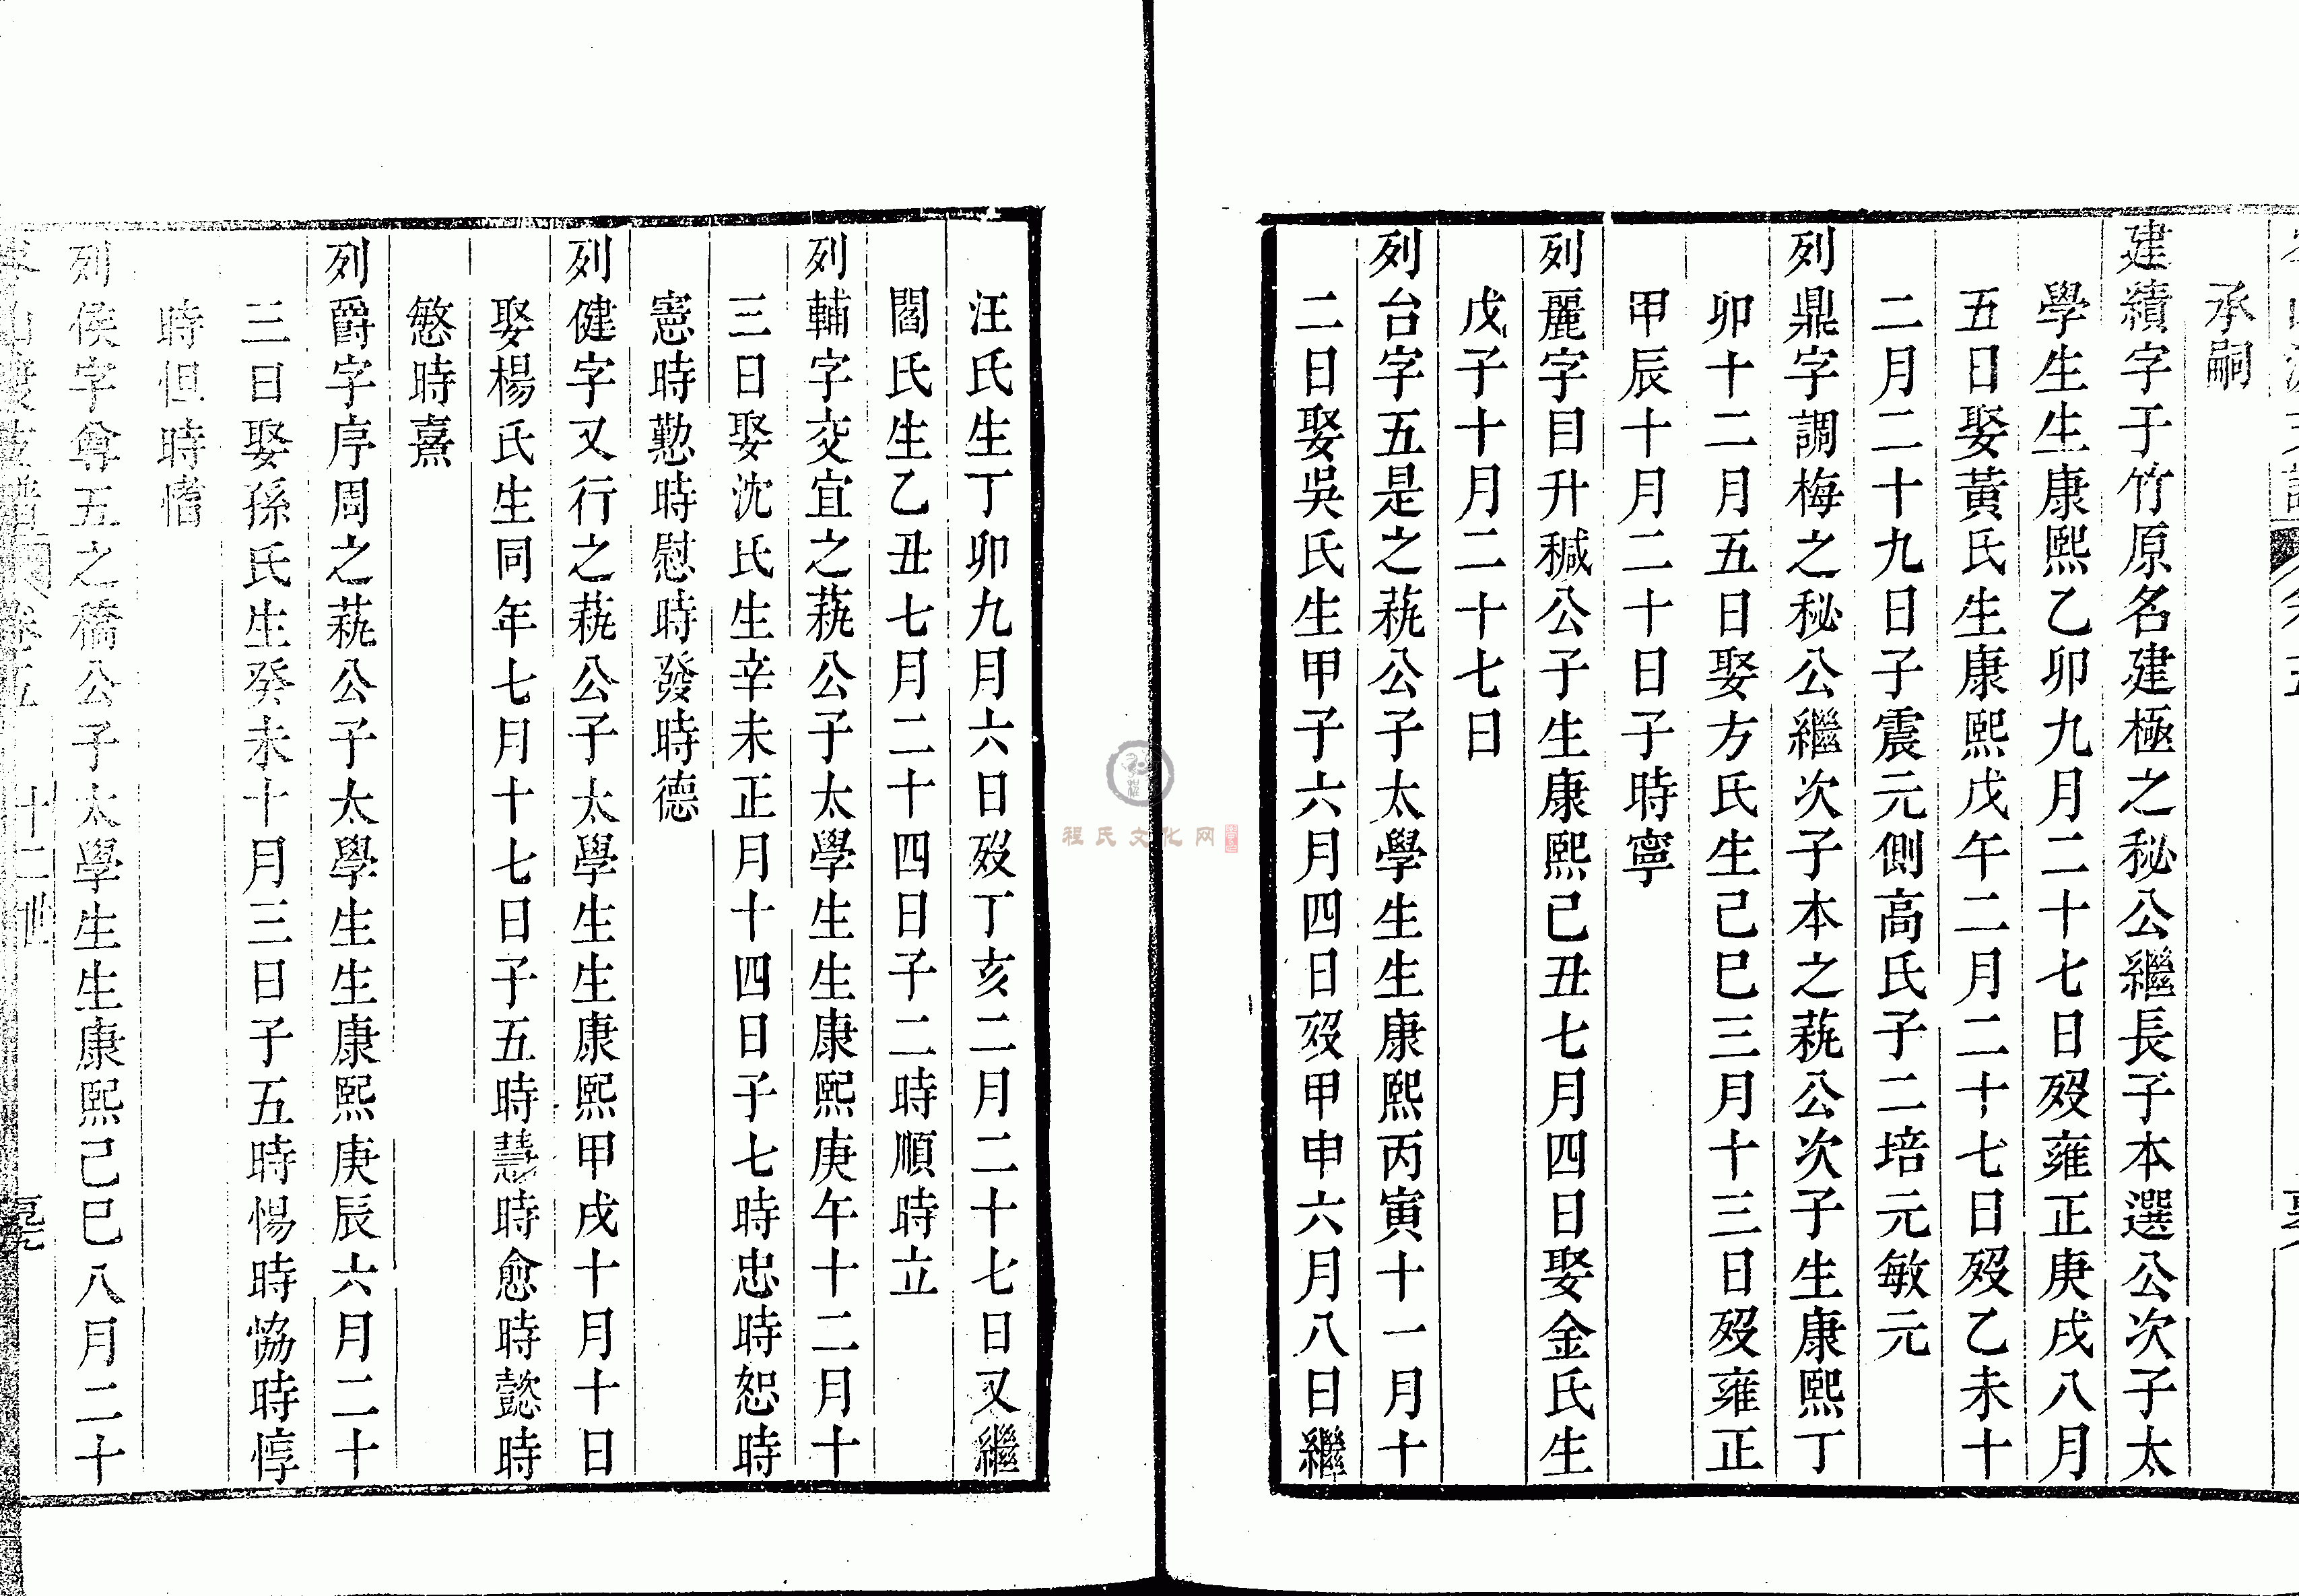 承嗣
建績字于竹原名建極之秘公繼長子本選公次子太
學生生康熙乙卯九月二十七日歿雍正庚戌八月
五日娶黃氏生康熙戊午二月二十七日歿乙未十
二月二十九日子震元側高氏子二培元敏元
列鼎字調梅之秘公繼次子本之蓺公次子生康熙丁
卯十二月五日娶方氏生己巳三月十三日歿雍正
甲辰十月二十日子時寧
列麗字目升穊公子生康熙己丑七月四日娶金氏生
戊子十月二十七日
列台字五是之蓺公子太學生生康熙丙寅十一月十
二日娶吳氏生甲子六月四日歿甲申六月八日繼
汪氏生丁卯九月六日歿丁亥二月二十七日又繼
閻氏生乙丑七月二十四日子二時順時立
列輔字交宜之蓺公子太學生生康熙庚午十二月十
三日娶沈氏生辛未正月十四日子七時忠時恕時
憲時懃時慰時發時德
列健字又行之蓺公子太學生生康熙甲戌十月十日
娶楊氏生同年七月十七日子五時慧時愈時懿時
慜時熹
列爵字序周之蓺公子太學生生康熙庚辰六月二十
三日娶孫氏生癸未十月三日子五時惕時恊時惇
時但時愭
列侯字尊五之穚公子太學生生康熙己巳八月二十
卷五 十二世
程氏文化网